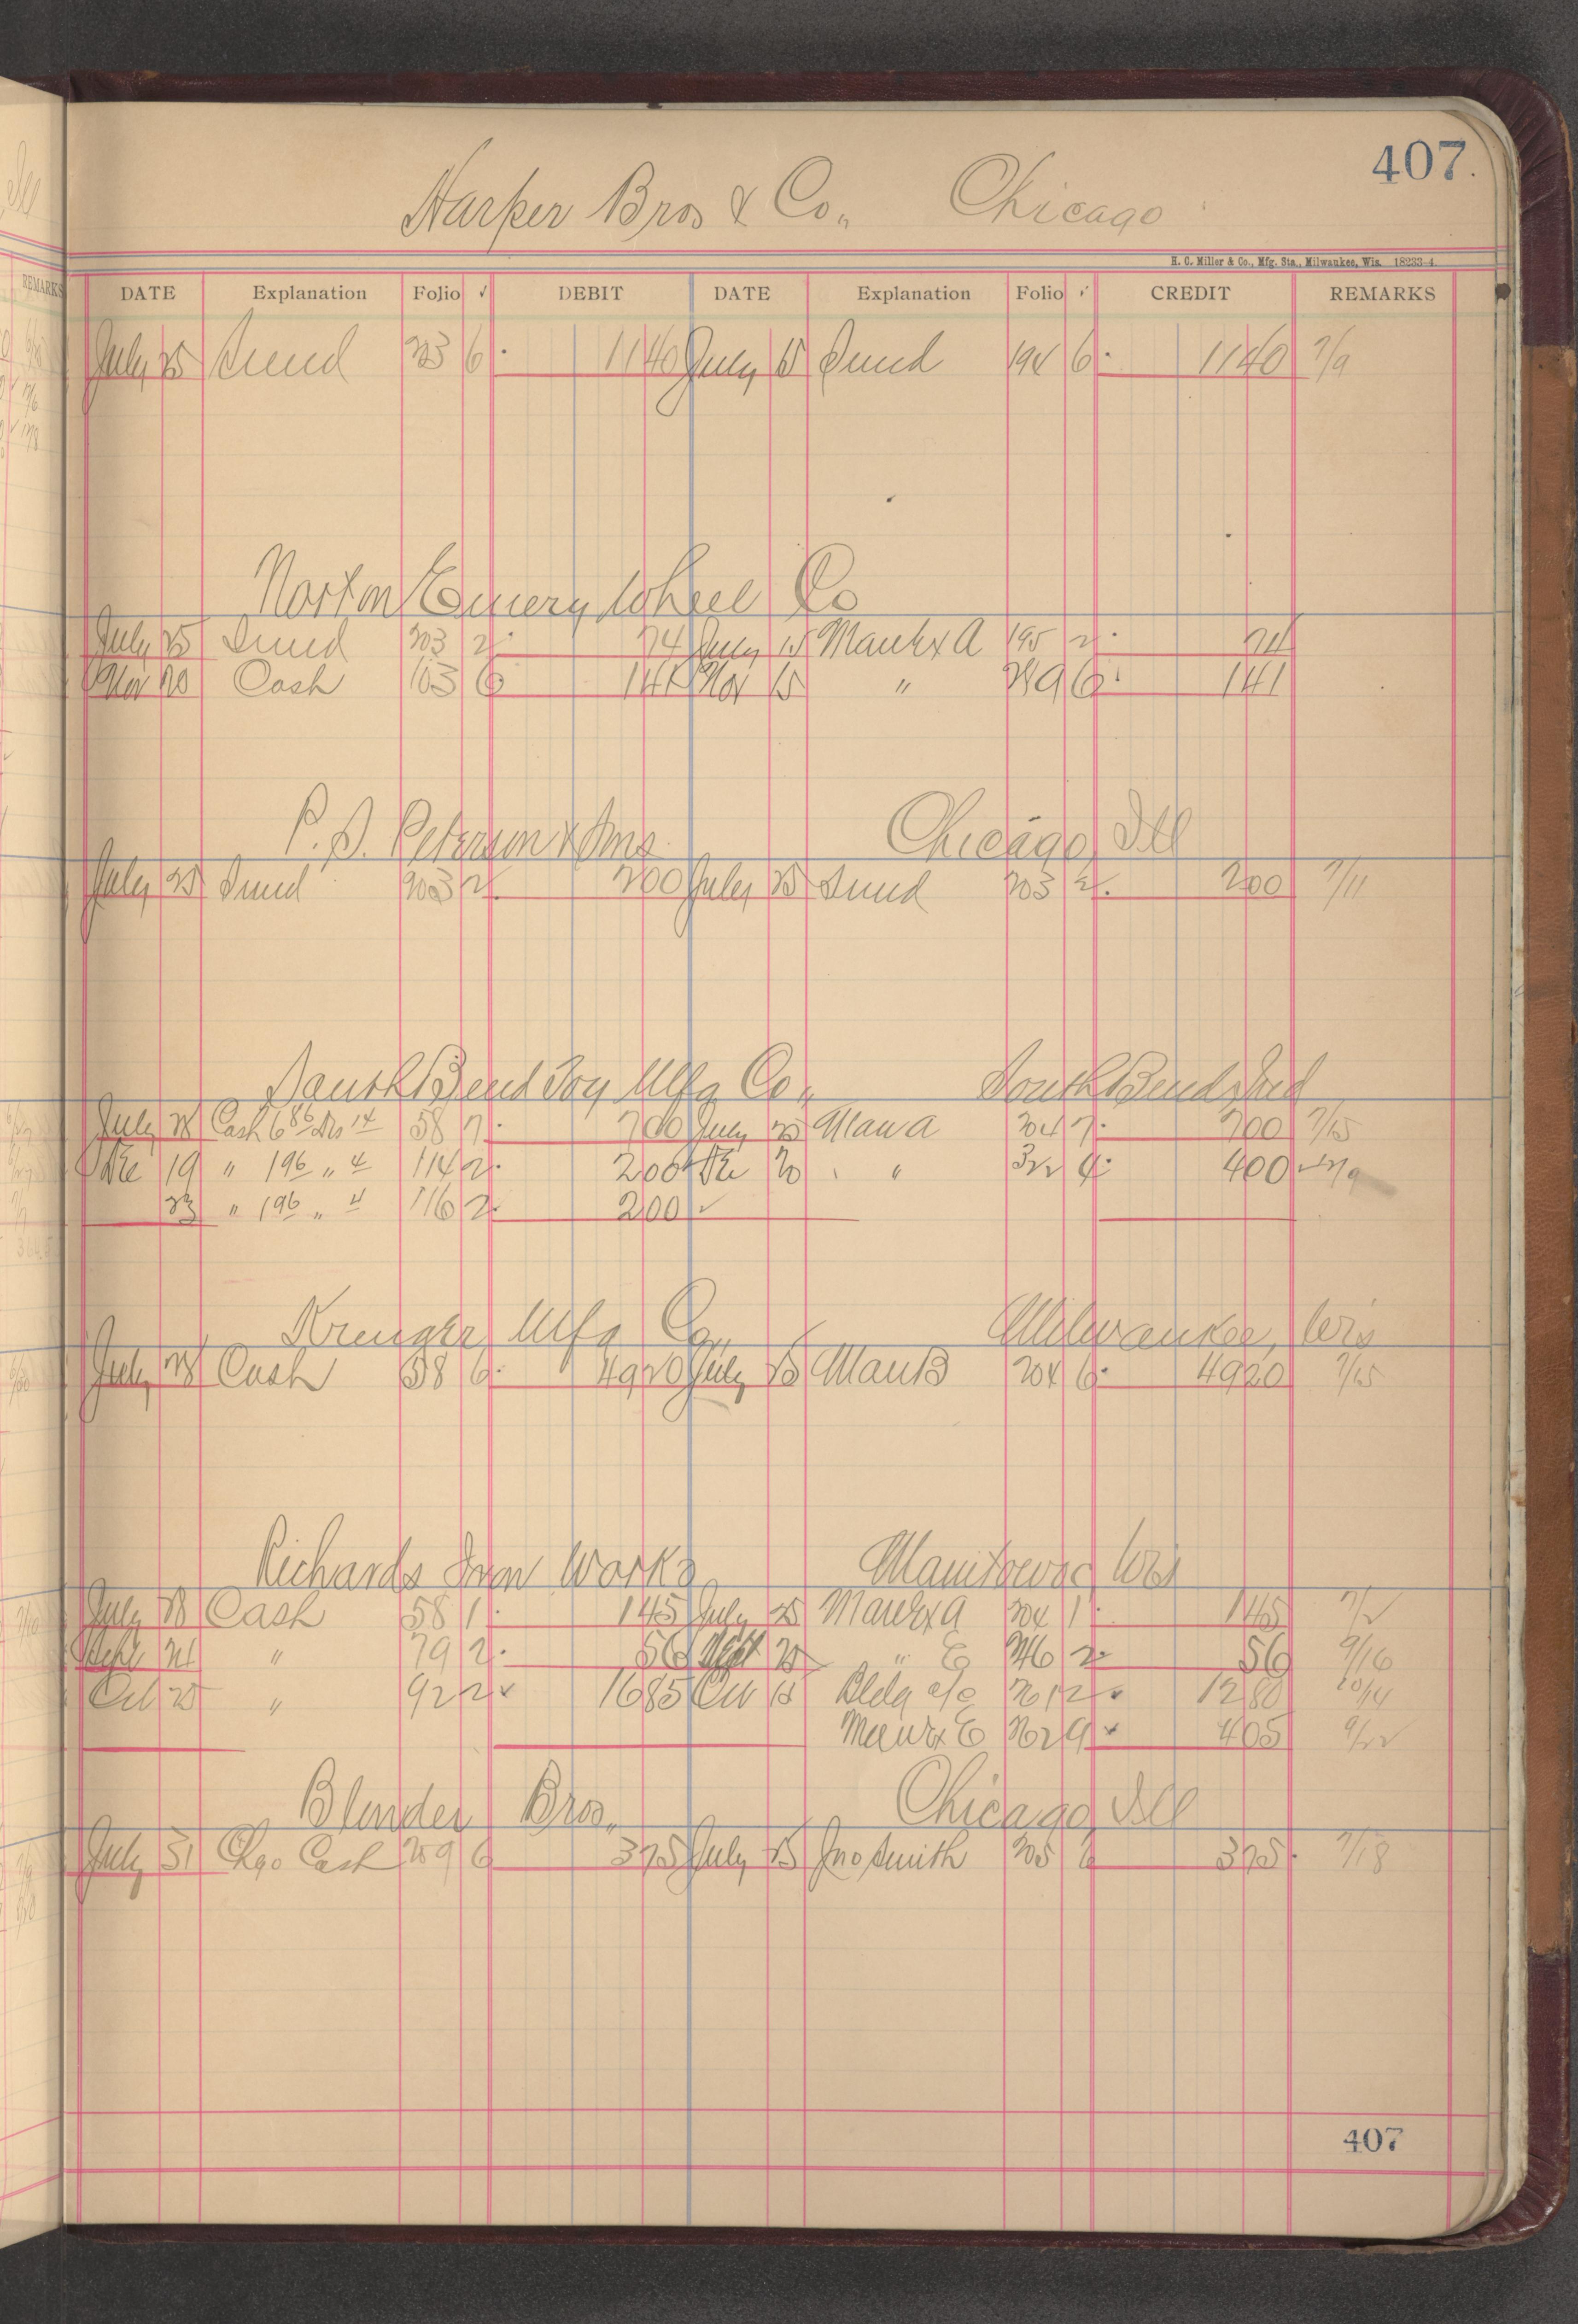 407.
Harper Bros & Co., Chicago
H. C. Miller & Co., Mfg. Sta., Milwaukee, Wis. 18233-4
DATE Explanation Folio ✓ DEBIT DATE Explanation Folio ✓ CREDIT REMARKS
July 25 Sund 203 6 1140 July 15 Sund 194 6 1140 7/9
Norton Emery Wheel Co
July 25 Sund 203 2 74 July 15 195 2 74
Nov 20 Cash 103 6 141 Nov 15 " 6 141
P. S. Peterson & Sons Chicago, Ill
July 25 Sund 203 2 200 July 25 Sund 203 2 200 7/11
South Bend Toy Mfg Co., South Bend, Ind
July 28 Cash 6 86 14 58 7 700 July 25 Man A 204 7 700 7/15
Dec 19 " 196 " 4 114 2 200 ✓ Dec 20 " 322 4 400 ✓ 12/9
23 " 196 " 4 116 2 200 ✓
Kreuger Mfg Co., Milwaukee, Wis
July 28 Cash 58 6 4920 July 25 Man B 204 6 4920 7/15
Richards Iron Works Manitowoc, Wis
July 28 Cash 58 1 145 July 25 204 1 145 7/2
Sept 24 " 79 2 56 Sept 25 " E 246 2 56 9/16
Oct 25 " 92 2 1685 Oct 15 Bldg a/c 261 2 1280 10/14
E 262 9 405 9/22
Blunder Bros., Chicago, Ill
July 31 Chgo Cash 209 6 375 July 25 Jno Smith 205 6 375 7/18
407